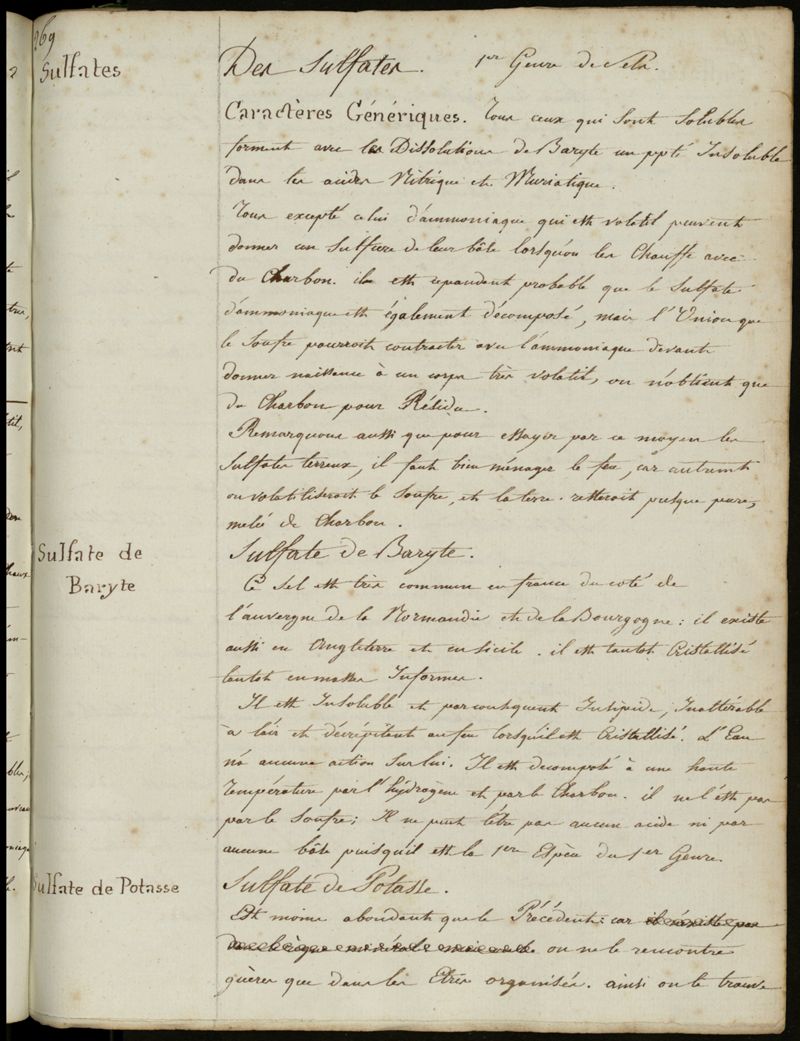 369
Sulfates
Des Sulfates. 1er Genre de Sels.
Caractères Génériques. Tous ceux qui sont solubles
forment avec les Dissolutions de Baryte un ppté Insoluble
dans les acides Nitrique et Muriatique.
Tous excepté celui d'ammoniaque qui est volatil peuvent
donner un Sulfure de leur bâse lorsqu'on les Chauffe avec
du Charbon. il est cependant probable que le Sulfate
d'ammoniaque est également décomposé, mais l'Union que
le Soufre pourroit contracter avec l'ammoniaque devant
donner naissance à un corps très volatil, on n'obtient que
du Charbon pour Résidu.
Remarquons aussi que pour essayer par ce moyen les
Sulfates terreux, il faut bien ménager le feu, car autremt
on volatiliseroit le Soufre, et la terre resteroit presque pure,
melée de Charbon.
Sulfate de
Baryte
Sulfate de Baryte.
Ce Sel est très commun en france du coté de
l'auvergne de la Normandie et de la Bourgogne: il existe
aussi en Angleterre et en sicile. il est tantot Cristallisé
tantot en masses Informes.
Il est Insoluble et par conséquent Insipide, Inaltérable
à l'air et décrépitant au feu lorsqu'il est Cristallisé. L'Eau
n'a aucune action sur lui. Il est decomposé à une haute
température par l'hydrogène et par le Charbon. il ne l'est pas
par le Soufre; Il ne peut l'être par aucun acide ni par
aucune bâse puisqu'il est la 1ere Espèce du 1er Genre.
Sulfate de Potasse
Sulfate de Potasse.
Est moins abondant que le Précédent: car il n'existe pas
dans le règne minéral on ne le rencontre
guères que dans les Etres organisés. ainsi on le trouve